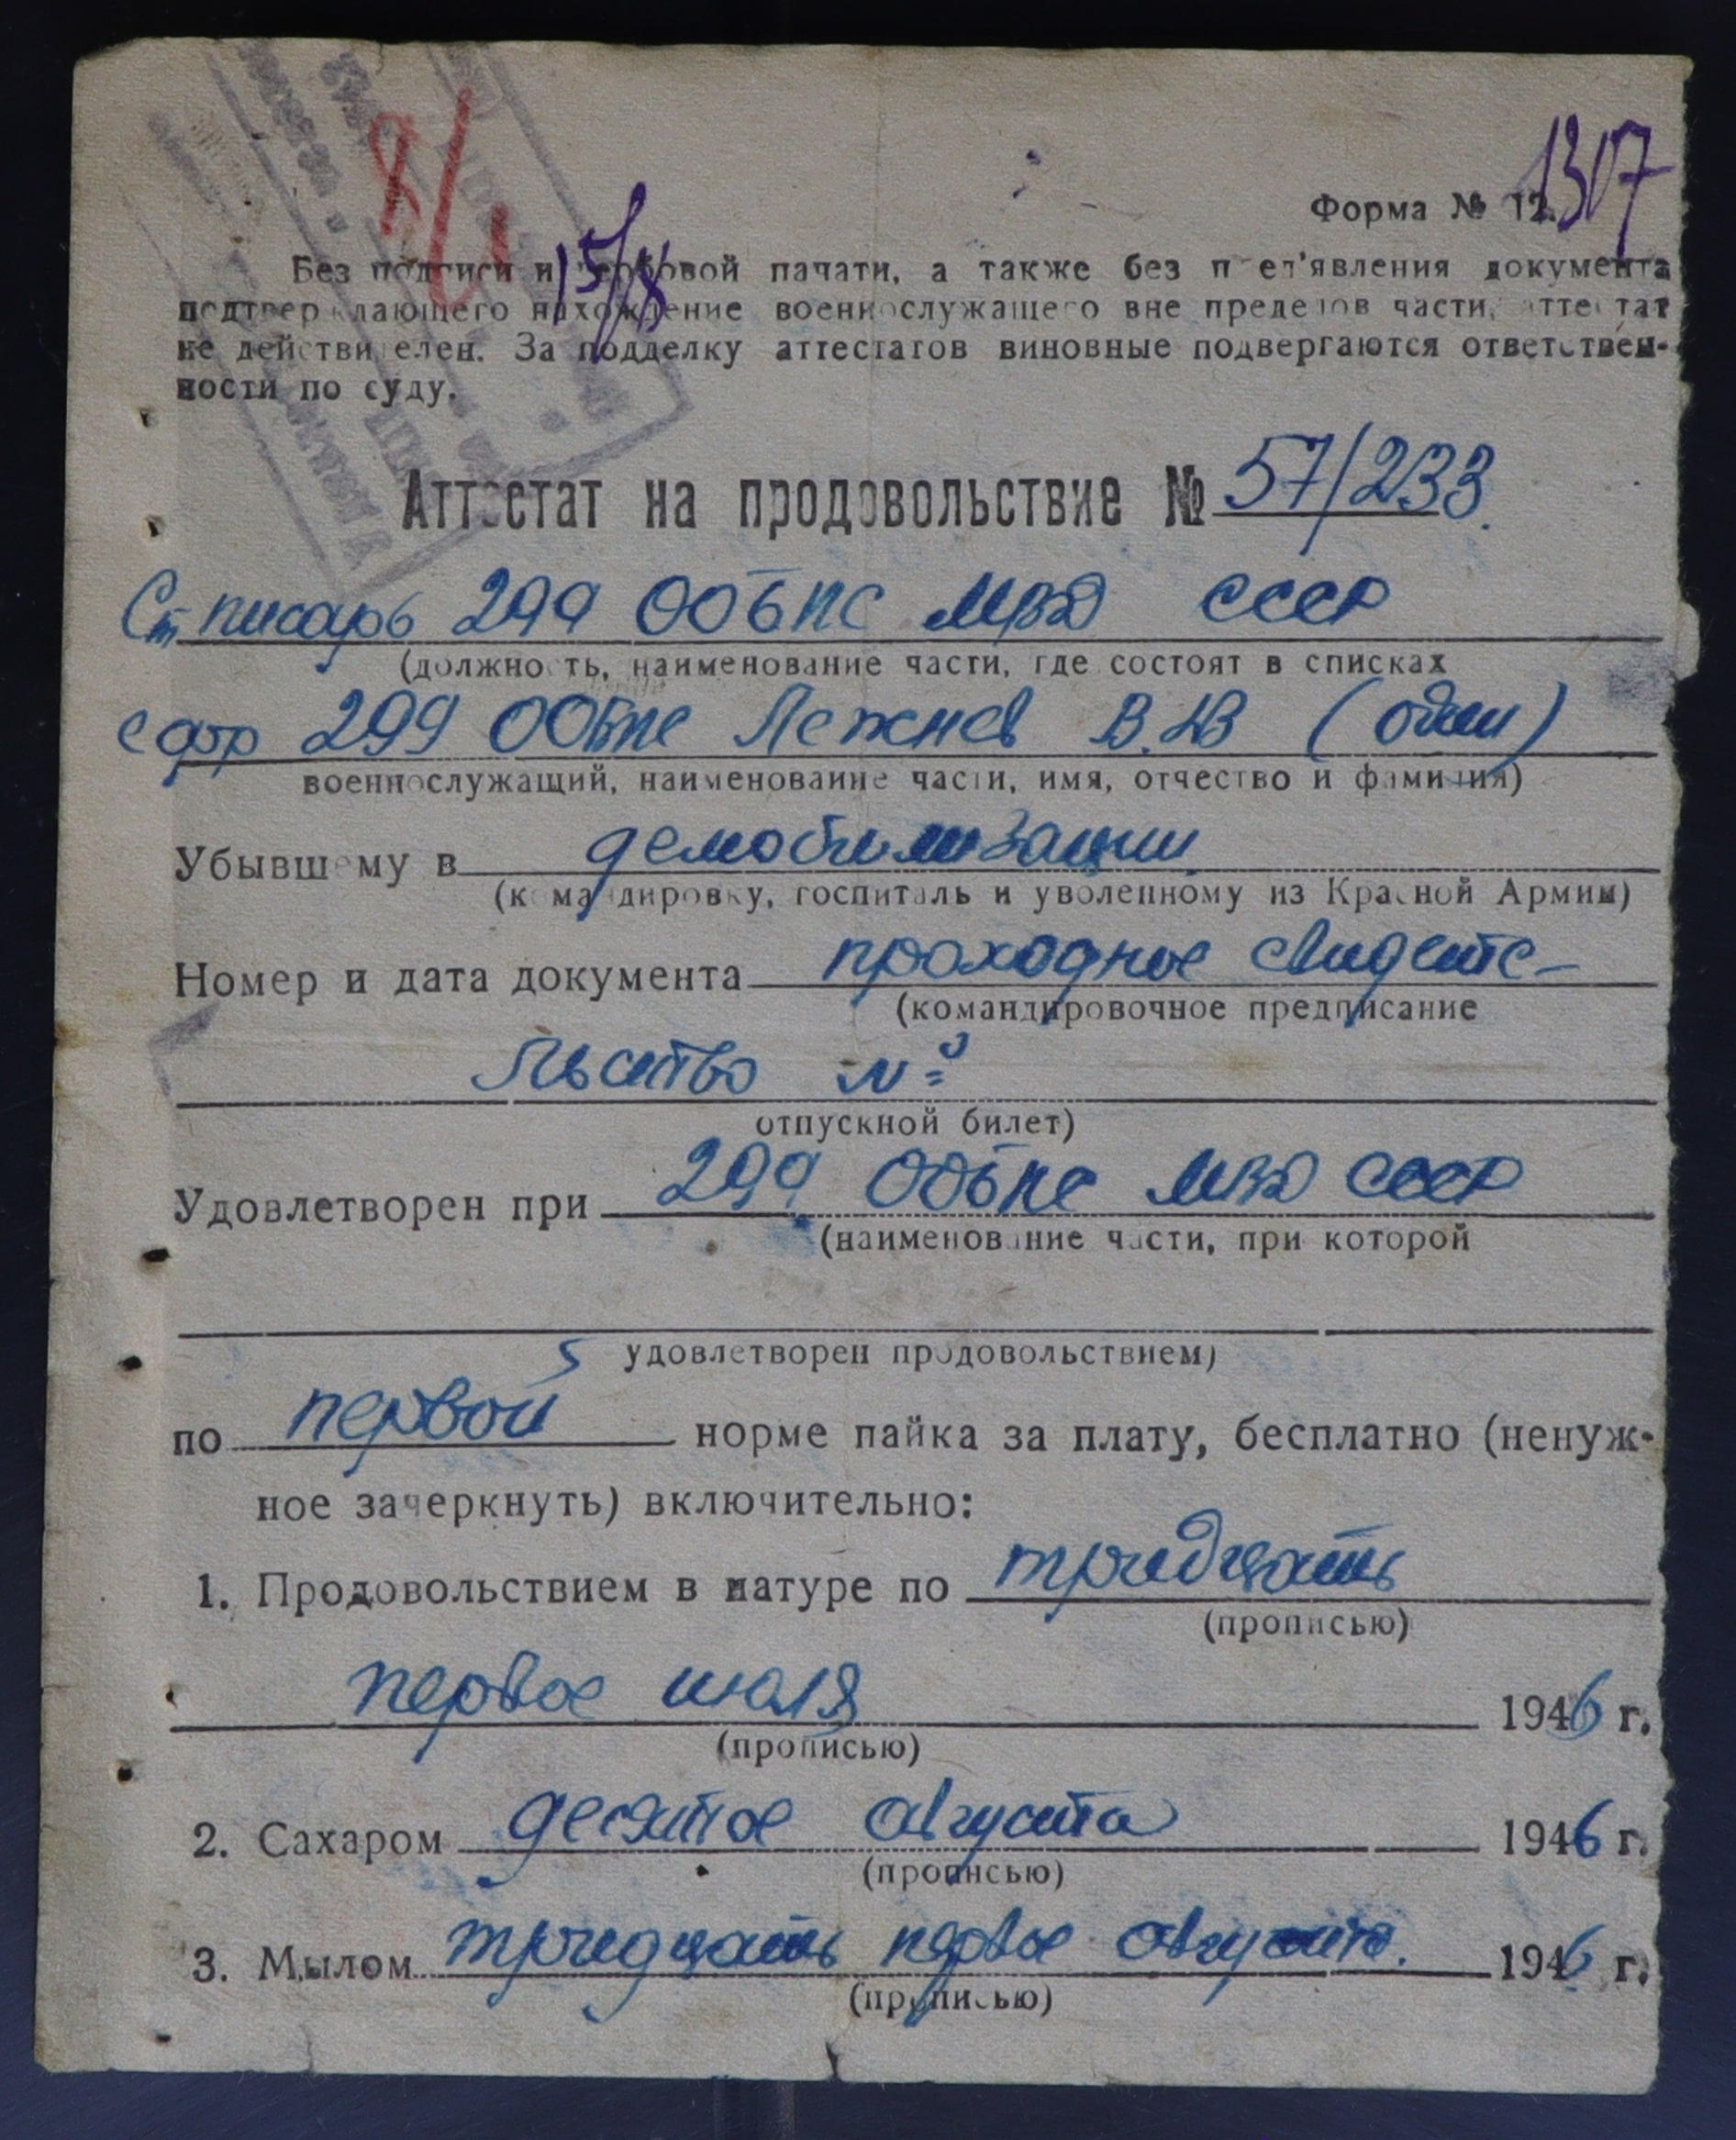 1307
Форма № 12.
8/1
15/X
Без подписи и гербовой пачати, а также без пред'явления документа
подтверждающего нахождение военнослужащего вне пределов части, аттестат
не действителен. За подделку аттестатов виновные подвергаются ответствен-
ности по суду.
Аттестат на продовольствие № 57/233.
Ст писарь 299 ООБПС МВД СССР
(должность, наименование части, где состоят в списках
299 ООБПС Лежнев В.В (один)
военнослужащий, наименование части, имя, отчество и фамилия)
Убывшему в демобилизации
(командировку, госпиталь и уволенному из Красной Армии)
Номер и дата документа проходное свидете-
(командировочное предписание
льство №
отпускной билет)
Удовлетворен при 299 ООБПС МВД СССР
(наименование части, при которой
удовлетворен продовольствием)
по первой норме пайка за плату, бесплатно (ненуж-
ное зачеркнуть) включительно:
1. Продовольствием в натуре по тридцать
(прописью)
первое июля 1946 г.
(прописью)
2. Сахаром десятое августа 1946 г.
(прописью)
3. Мылом тридцать первое августа. 1946 г.
(прописью)